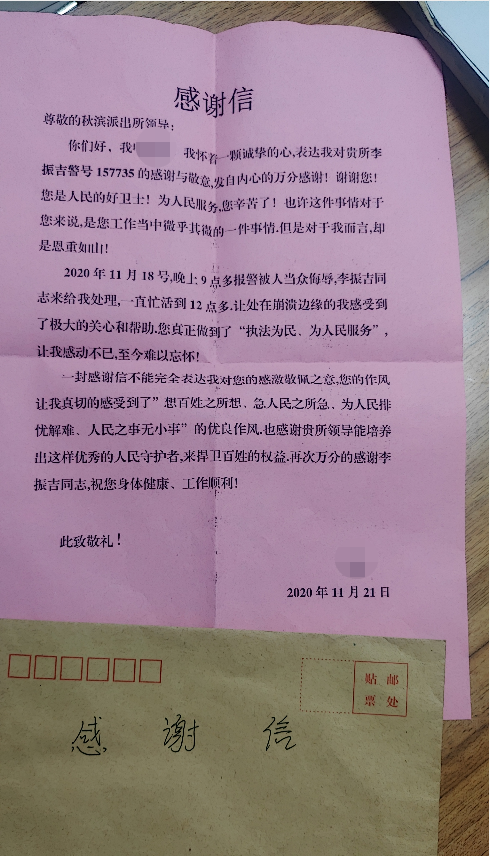 感谢信
尊敬的秋滨派出所领导:
你们好、我 我怀着一颗诚挚的心,表达我对贵所李
振吉警号 157735 的感谢与敬意,发自内心的万分感谢！谢谢您!
您是人民的好卫士！为人民服务,您辛苦了！也许这件事情对于
您来说,是您工作当中微乎其微的一件事情.但是对于我而言,却
是恩重如山!
2020 年 11 月 18 号,晚上 9 点多报警被人当众侮辱,李振吉同
志来给我处理,一直忙活到 12 点多.让处在崩溃边缘的我感受到
了极大的关心和帮助.您真正做到了“执法为民、为人民服务”,
让我感动不已,至今难以忘怀!
一封感谢信不能完全表达我对您的感激敬佩之意,您的作风
让我真切的感受到了”想百姓之所想、急人民之所急、为人民排
忧解难、人民之事无小事”的优良作风.也感谢贵所领导能培养
出这样优秀的人民守护者,来捍卫百姓的权益.再次万分的感谢李
振吉同志,祝您身体健康、工作顺利!
此致敬礼！
2020 年 11 月 21 日
贴 邮
票 处
感 谢 信